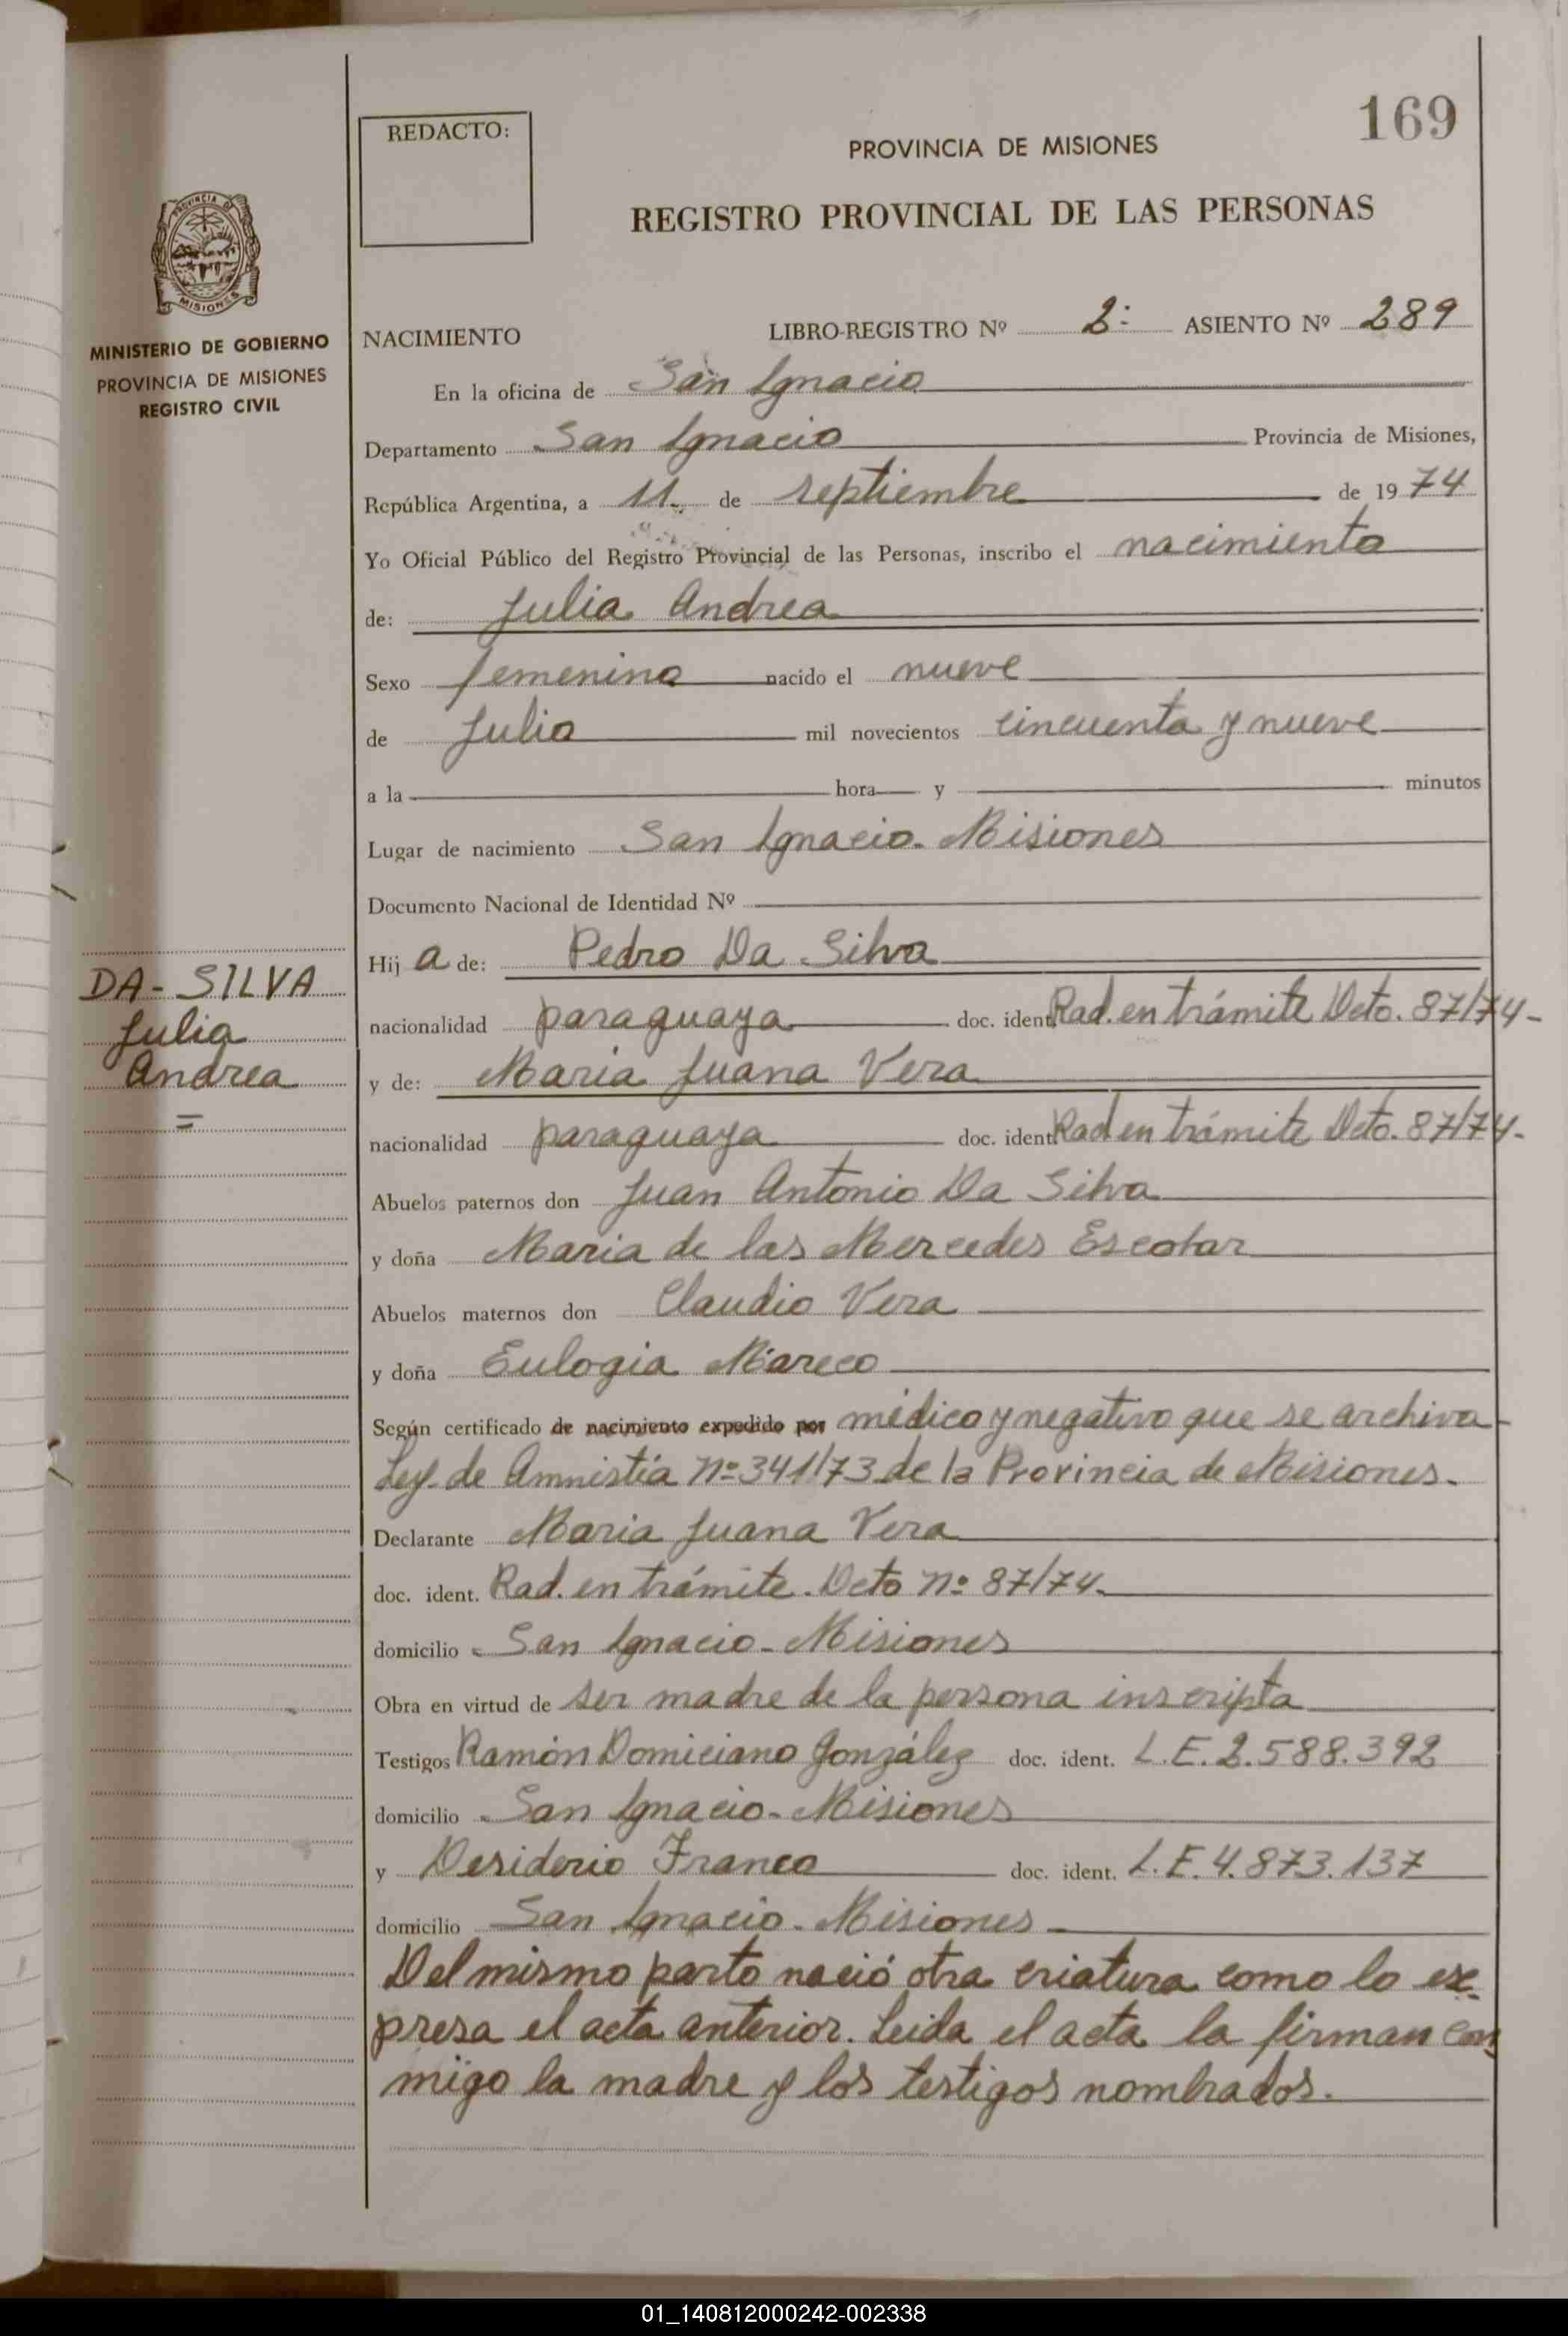 169
REDACTO:
PROVINCIA DE MISIONES
REGISTRO PROVINCIAL DE LAS PERSONAS
PROVINCIA DE
MISIONES
MINISTERIO DE GOBIERNO
PROVINCIA DE MISIONES
REGISTRO CIVIL
NACIMIENTO LIBRO-REGISTRO Nº 2: ASIENTO Nº 289
En la oficina de San Ignacio
Departamento San Ignacio Provincia de Misiones,
República Argentina, a 11. de septiembre de 19 74
Yo Oficial Público del Registro Provincial de las Personas, inscribo el nacimiento
de: Julia Andrea
Sexo femenino nacido el nueve
de Julio mil novecientos cincuenta y nueve
a la hora y minutos
Lugar de nacimiento San Ignacio. Misiones
Documento Nacional de Identidad Nº
Hij a de: Pedro Da Silva
DA-SILVA
Julia
Andrea
=
nacionalidad paraguaya doc. ident. Rad. en trámite Dcto. 87/74-
y de: Maria Juana Vera
nacionalidad paraguaya doc. ident. Rad en trámite Dcto. 87/74-
Abuelos paternos don Juan Antonio Da Silva
y doña Maria de las Mercedes Escobar
Abuelos maternos don Claudio Vera
y doña Eulogia Mareco
Según certificado de nacimiento expedido por médico y negativo que se archiva-
Ley de Amnistía nº 341/73 de la Provincia de Misiones.
Declarante Maria Juana Vera
doc. ident. Rad. en trámite. Dcto nº 87/74.
domicilio San Ignacio-Misiones
Obra en virtud de ser madre de la persona inscripta
Testigos Ramón Domiciano González doc. ident. L.E. 2.588.392
domicilio San Ignacio-Misiones
y Desiderio Franco doc. ident. L.E. 4.873.137
domicilio San Ignacio-Misiones
Del mismo parto nació otra criatura como lo ex-
presa el acta anterior. Leida el acta la firman con
migo la madre y los testigos nombrados.
01_140812000242-002338